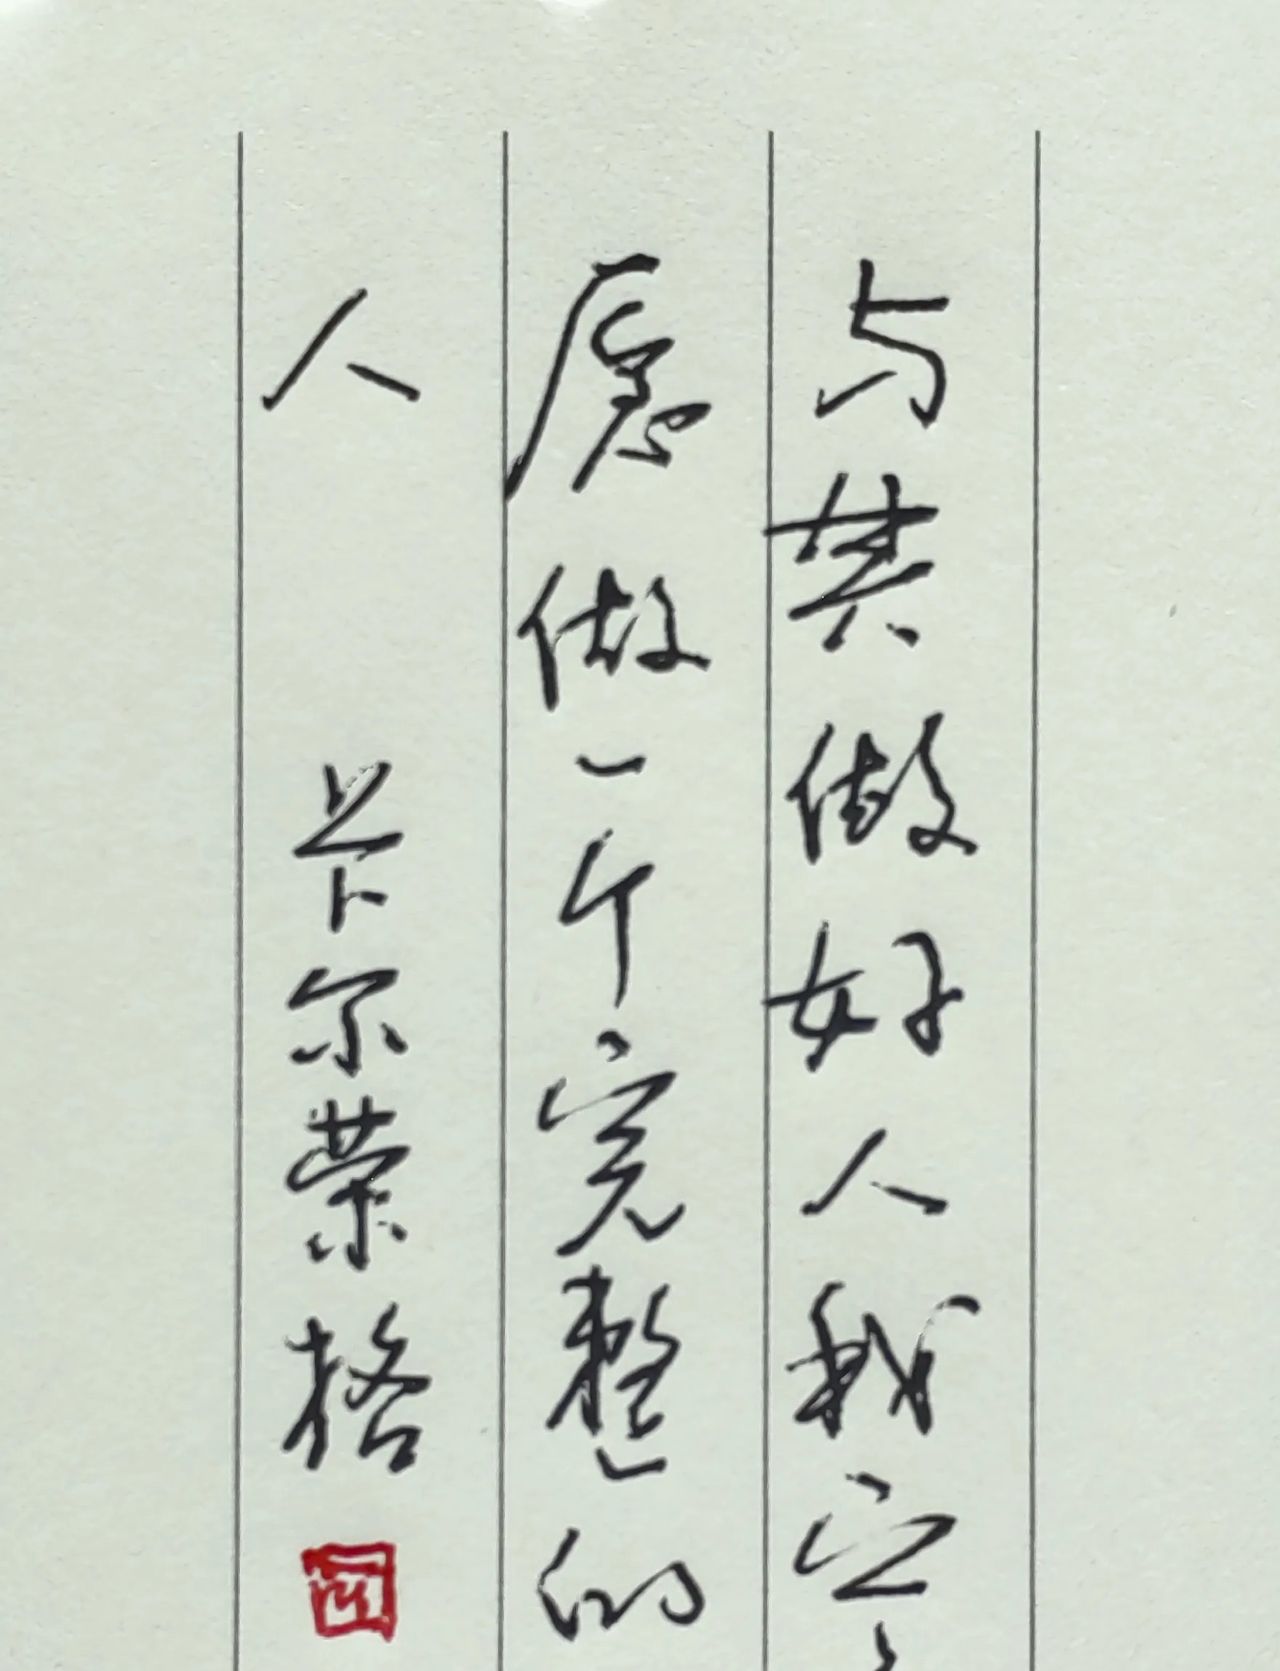 与其做好人我宁
愿做一个完整的
人 卡尔荣格